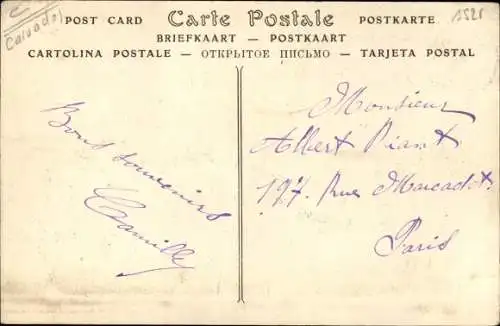 Calvados
1521
POST CARD Carte Postale POSTKARTE
BRIEFKAART — POSTKAART
CARTOLINA POSTALE — ОТКРЫТОЕ ПИСЬМО — TARJETA POSTAL
Bons souvenirs
Camille
Monsieur
Albert Riant
127. Rue Marcadet.
Paris